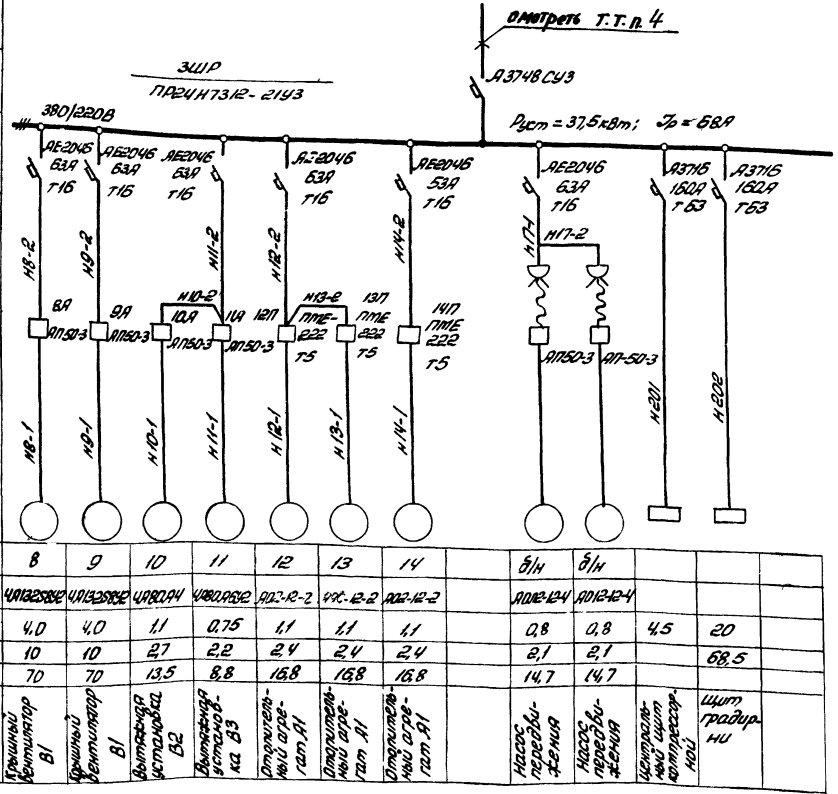 смотреть Т.Т.п. 4
3ШР
ПР24Н7312-21УЗ
А3748СУЗ
380/220В
Руст = 37,5кВт; Jр = 68А
АЕ2046
63А
Т16
АЕ2046
63А
Т16
АЕ2046
63А
Т16
АЕ2046
63А
Т16
АЕ2046
63А
Т16
АЕ2046
63А
Т16
А3716
160А
Т63
А3716
160А
Т63
Н8-2
Н9-2
Н11-2
Н12-2
Н14-2
Н17-1
Н17-2
8А
АП50-3
9А
АП50-3
Н10-2
10А
АП50-3
11А
АП50-3
12П
ПМЕ-
222
Т5
Н13-2
13П
ПМЕ
222
Т5
14П
ПМЕ
222
Т5
АП50-3
АП-50-3
Н8-1
Н9-1
Н10-1
Н11-1
Н12-1
Н13-1
Н14-1
Н201
Н202
8 9 10 11 12 13 14 б/н б/н
4А80А4 А02-12-2 А02-12-2 АО12-12-4 АО12-12-4
4,0 4,0 1,1 0,75 1,1 1,1 1,1 0,8 0,8 4,5 20
10 10 2,7 2,2 2,4 2,4 2,4 2,1 2,1 68,5
70 70 13,5 8,8 16,8 16,8 16,8 14,7 14,7
Крышный
вентилятор
В1
Крышный
вентилятор
В1
Вытяжная
установка
В2
Вытяжная
установ-
ка В3
Отопитель-
ный агре-
гат А1
Отопитель-
ный агре-
гат А1
Отопитель-
ный агре-
гат А1
Насос
передви-
жения
Насос
передви-
жения
Централь-
ный щит
компрессор-
ной
Щит
градир-
ни